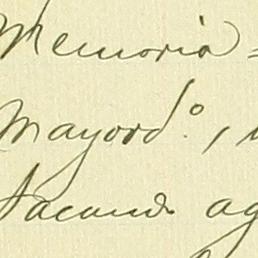 Memoria =
Mayord.º,
Sacando ag